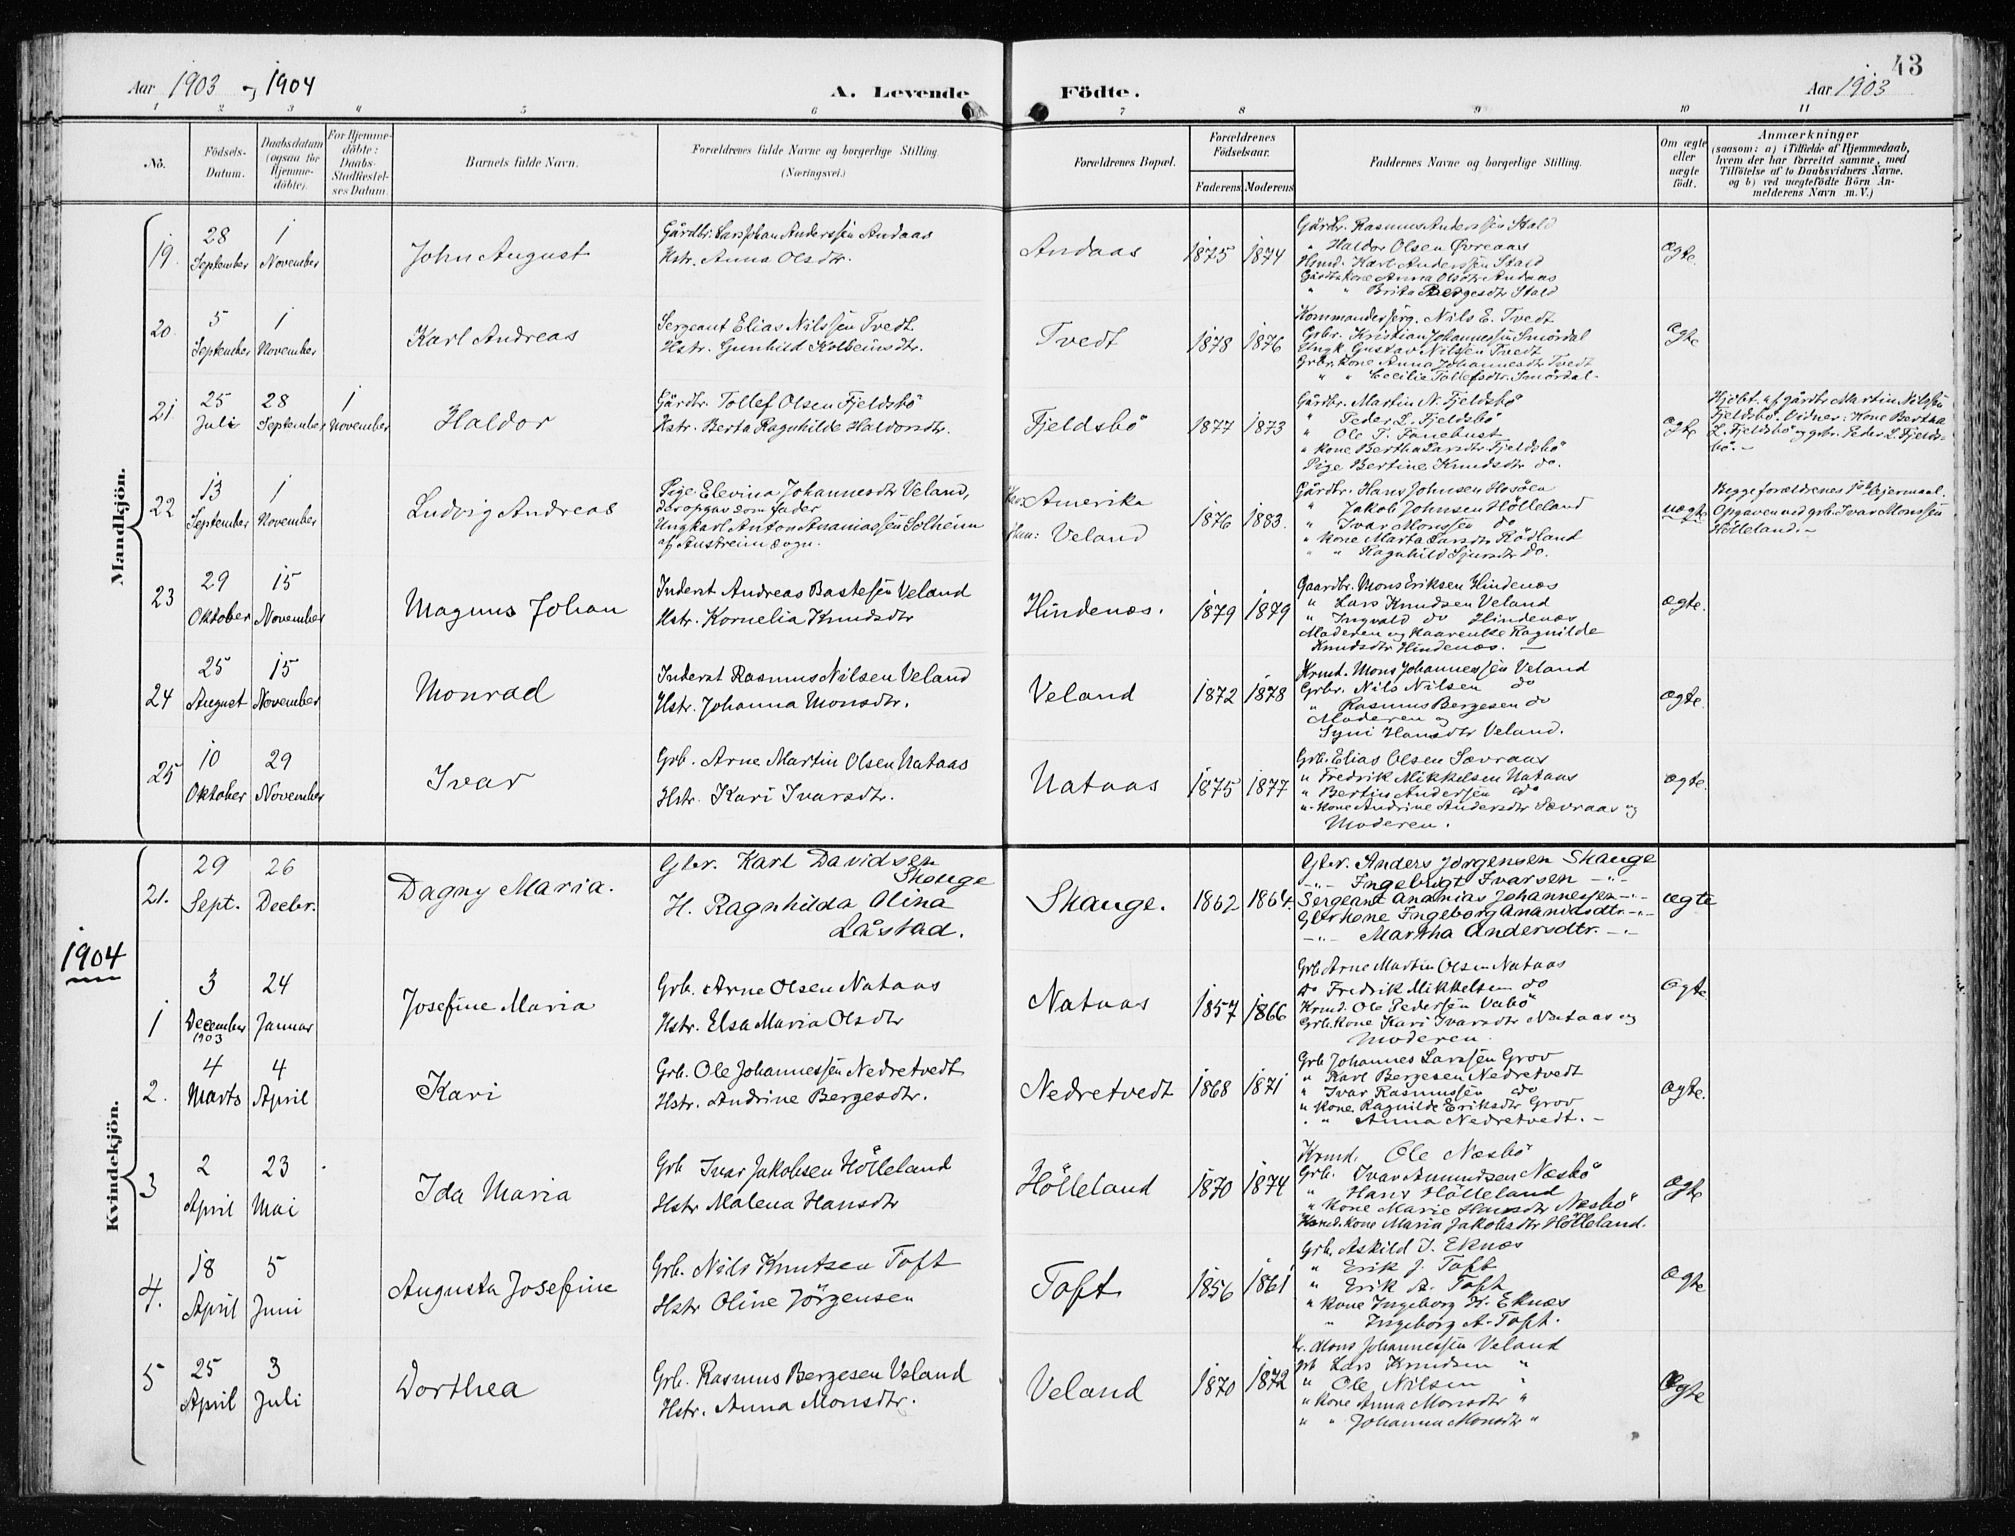 43
Aar 1903 og 1904
A. Levende Födte.
Aar 1903
1 2 3 4 5 6 7 8 9 10 11
No.
Födsels-Datum.
Daabsdatum (ogsaa for Hjemme-döbte).
For Hjemme-döbte: Daabs-Stadfæstel-ses Datum.
Barnets fulde Navn.
Forældrenes fulde Navne og borgerlige Stilling.
(Næringsvei.)
Forældrenes Bopæl.
Forældrenes Födselsaar.
Faderens Moderens
Faddernes Navne og borgerlige Stilling.
Om ægte eller uægte födt.
Anmærkninger
(saasom: a) i Tilfælde af Hjemmedaab,
hvem der har forrettet samme, med
Tilföielse af to Daabsvidners Navne,
og b) ved uægtefödte Börn An-
melderens Navn m. V.)
Mandkjön.
19. 28 September 1 November
John August
Gårdbr. Lars Johan Anderssen Andaas
Hstr. Anna Olsdtr.
Andaas 1875 1874
Gårdbr. Rasmus Anderssen Stald
" Haldor Olsen Øvreaas
Hsmd. Karl Anderssen Stald
Gårdbr.kone Anna Olsdtr Andaas
" " Brita Bergesdtr Stald
ægte.
20. 5 September 1 November
Karl Andreas
Sergeant Elias Nilssen Tvedt
Hstr. Gunhild Kolbeinsdtr.
Tvedt 1878 1876
Kommandersjerg. Nils E. Tvedt
Grbr. Kristian Johannessen Smørdal
Ungk. Gustav Nilssen Tvedt
Grbr.kone Anna Johannesdtr Tvedt
" " Cecilie Tollefsdtr Smørdal.
ægte
21 25 Juli 28 September 1 November
Haldor
Gårdbr. Tollef Olsen Fjeldsbö
Hstr. Berta Ragnhilde Haldorsdtr.
Fjeldsbö 1877 1873
Gårdbr. Martin N. Fjeldsbö
" Peder L. Fjeldsbö
" Ole T. Fanebust
" kone Bertha Larsdtr Fjeldsbö
Pige Bertine Knudsdtr do.
ægte
Hjdbt. af gårdbr Martin Nilssen
Fjeldsbö. Vidner: Kone Bertha
L. Fjeldsbö og gbr. Peder L. Fjelds-
bö.-
22 13 September 1 November
Ludvig Andreas
Pige Elevina Johannesdtr Veland,
Ungkarl Anton Ananiassen Solheim
af Austrheim sogn.
Han: Amerika
Hun: Veland
1876 1883.
Gårdbr. Hans Johnsen Hosöen
" Jakob Johnsen Hölleland
" Ivar Monssen do
" kone Marta Larsdtr Rödland
" " Ragnhild Sjursdtr do.
uægte
Begge forældrenes 1ste Leiermaal.
Opgaven ved grb. Ivar Monssen
Hölleland.-
23 29 Oktober 15 November
Magnus Johan
Inderst Andreas Bastesen Veland
Hstr. Kornelia Knudsdtr
Hindenæs. 1879 1879
Gaardbr. Mons Eriksen Hindenæs
" Lars Knudsen Veland
" Ingvald do Hindenæs
Moderen og Ragnilde
Knudsdtr Hindenæs. -
ægte.
24 25 August 15 November
Monrad
Inderst Rasmus Nilsen Veland
Hstr. Johanna Monsdtr.
Veland 1872 1878
Krmd. Mons Johannessen Veland
Grbr. Nils Nilsen do
" Rasmus Bergesen do
Moderen og
Syni Hansdtr Veland.
ægte.
25 10 Oktober 29 November
Ivar
Grb. Arne Martin Olsen Nataas
Hstr. Kari Ivarsdtr.
Nataas 1875 1877
Grb. Elias Olsen Sævraas
" Fredrik Mikkelsen Nataas
" Bertin Andersen do
" kone Andrine Andersdtr Sævraas og
Moderen.
ægte.
Kvindekjön.
21. 29 Sept. 26 Decbr.
Dagny Maria.
Gbr. Karl Davidsen
Skauge
H. Ragnhilda Olina
Låstad.
Skauge. 1862 1864.
Gbr. Anders Jørgensen Skauge
-"- Ingebrigt Ivarsen -"-
Sergeant Ananias Johannessen -"-
Gbrkone Ingeborg Ananiasdtr. -"-
-"- Martha Andersdtr. -"-
ægte
1904
1 3 December 1903 24 Januar
Josefine Maria
Grb. Arne Olsen Nataas
Hstr. Elsa Maria Olsdtr
Nataas 1857 1866
Grb Arne Martin Olsen Nataas
Do Fredrik Mikkelsen do
Krmd. Ole Pedersen Vabö
Grb.kone Kari Ivarsdtr Nataas og
Moderen.
ægte
2. 4 Marts 4 April
Kari
Grb. Ole Johannessen Nedretvedt
Hstr. Andrine Bergesdtr.
Nedretvedt 1868 1871
Grb Johannes Larssen Grov
" Karl Bergesen Nedretvedt
" Ivar Rasmussen do
" kone Ragnilde Eriksdtr Grov
" " Anna Nedretvedt. -
ægte.
3 2 April 23 Mai
Ida Maria
Grb Ivar Jakobsen Hölleland
Hstr Malena Hansdtr
Hölleland 1870 1874
Krmd. Ole Næsbö
Grb. Ivar Amundsen Næsbö
" Hans Hölleland
" kone Marie Hansdtr Næsbö
Krmd. kone Maria Jakobsdtr Hölleland.
ægte
4. 18 April 5 Juni
Augusta Josefine
Grb. Nils Knutsen Toft
Hstr Oline Jörgensen
Toft 1856 1861
Grb. Askild I. Eknæs
" Erik J. Toft
" Erik A. Toft
" kone Ingeborg K. Eknæs
" Ingeborg A. Toft.
ægte
5 25 April 3 Juli
Dorthea
Grb. Rasmus Bergesen Veland
Hstr. Anna Monsdtr.
Veland 1870 1872
Kr. Mons Johannessen Veland
grb Lars Knudsen "
" Ole Nilsen "
" kone Anna Monsdtr "
" " Johanna Monsdtr "
ægte